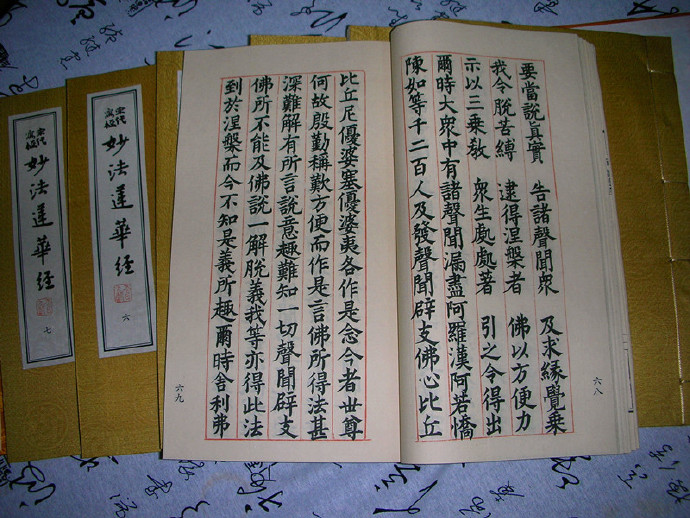 要當說眞實 告諸聲聞衆 及求緣覺乘
我令脫苦縛 逮得涅槃者 佛以方便力
示以三乘教 衆生處處著 引之令得出
爾時大衆中有諸聲聞漏盡阿羅漢阿若憍
陳如等千二百人及發聲聞辟支佛心比丘
六八
比丘尼優婆塞優婆夷各作是念今者世尊
何故殷勤稱歎方便而作是言佛所得法甚
深難解有所言說意趣難知一切聲聞辟支
佛所不能及佛說一解脫義我等亦得此法
到於涅槃而今不知是義所趣爾時舍利弗
六九
宋代
妙法蓮華經
六
宋代
妙法蓮華經
七